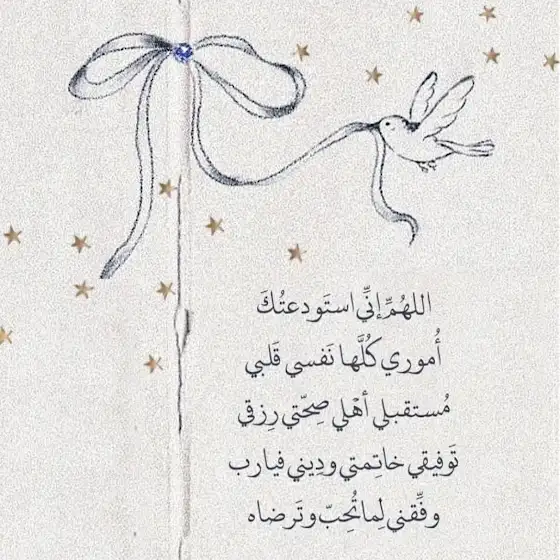 اللهُمَّ إنِّي استَودعتُكَ
أُموري كُلَّها نَفسي قَلبي
مُستقبلي أهْلي صِحّتي رِزقي
تَوفيقي خاتِمتي ودِيني فيارب
وفِّقني لِما تُحِبّ وتَرضاه